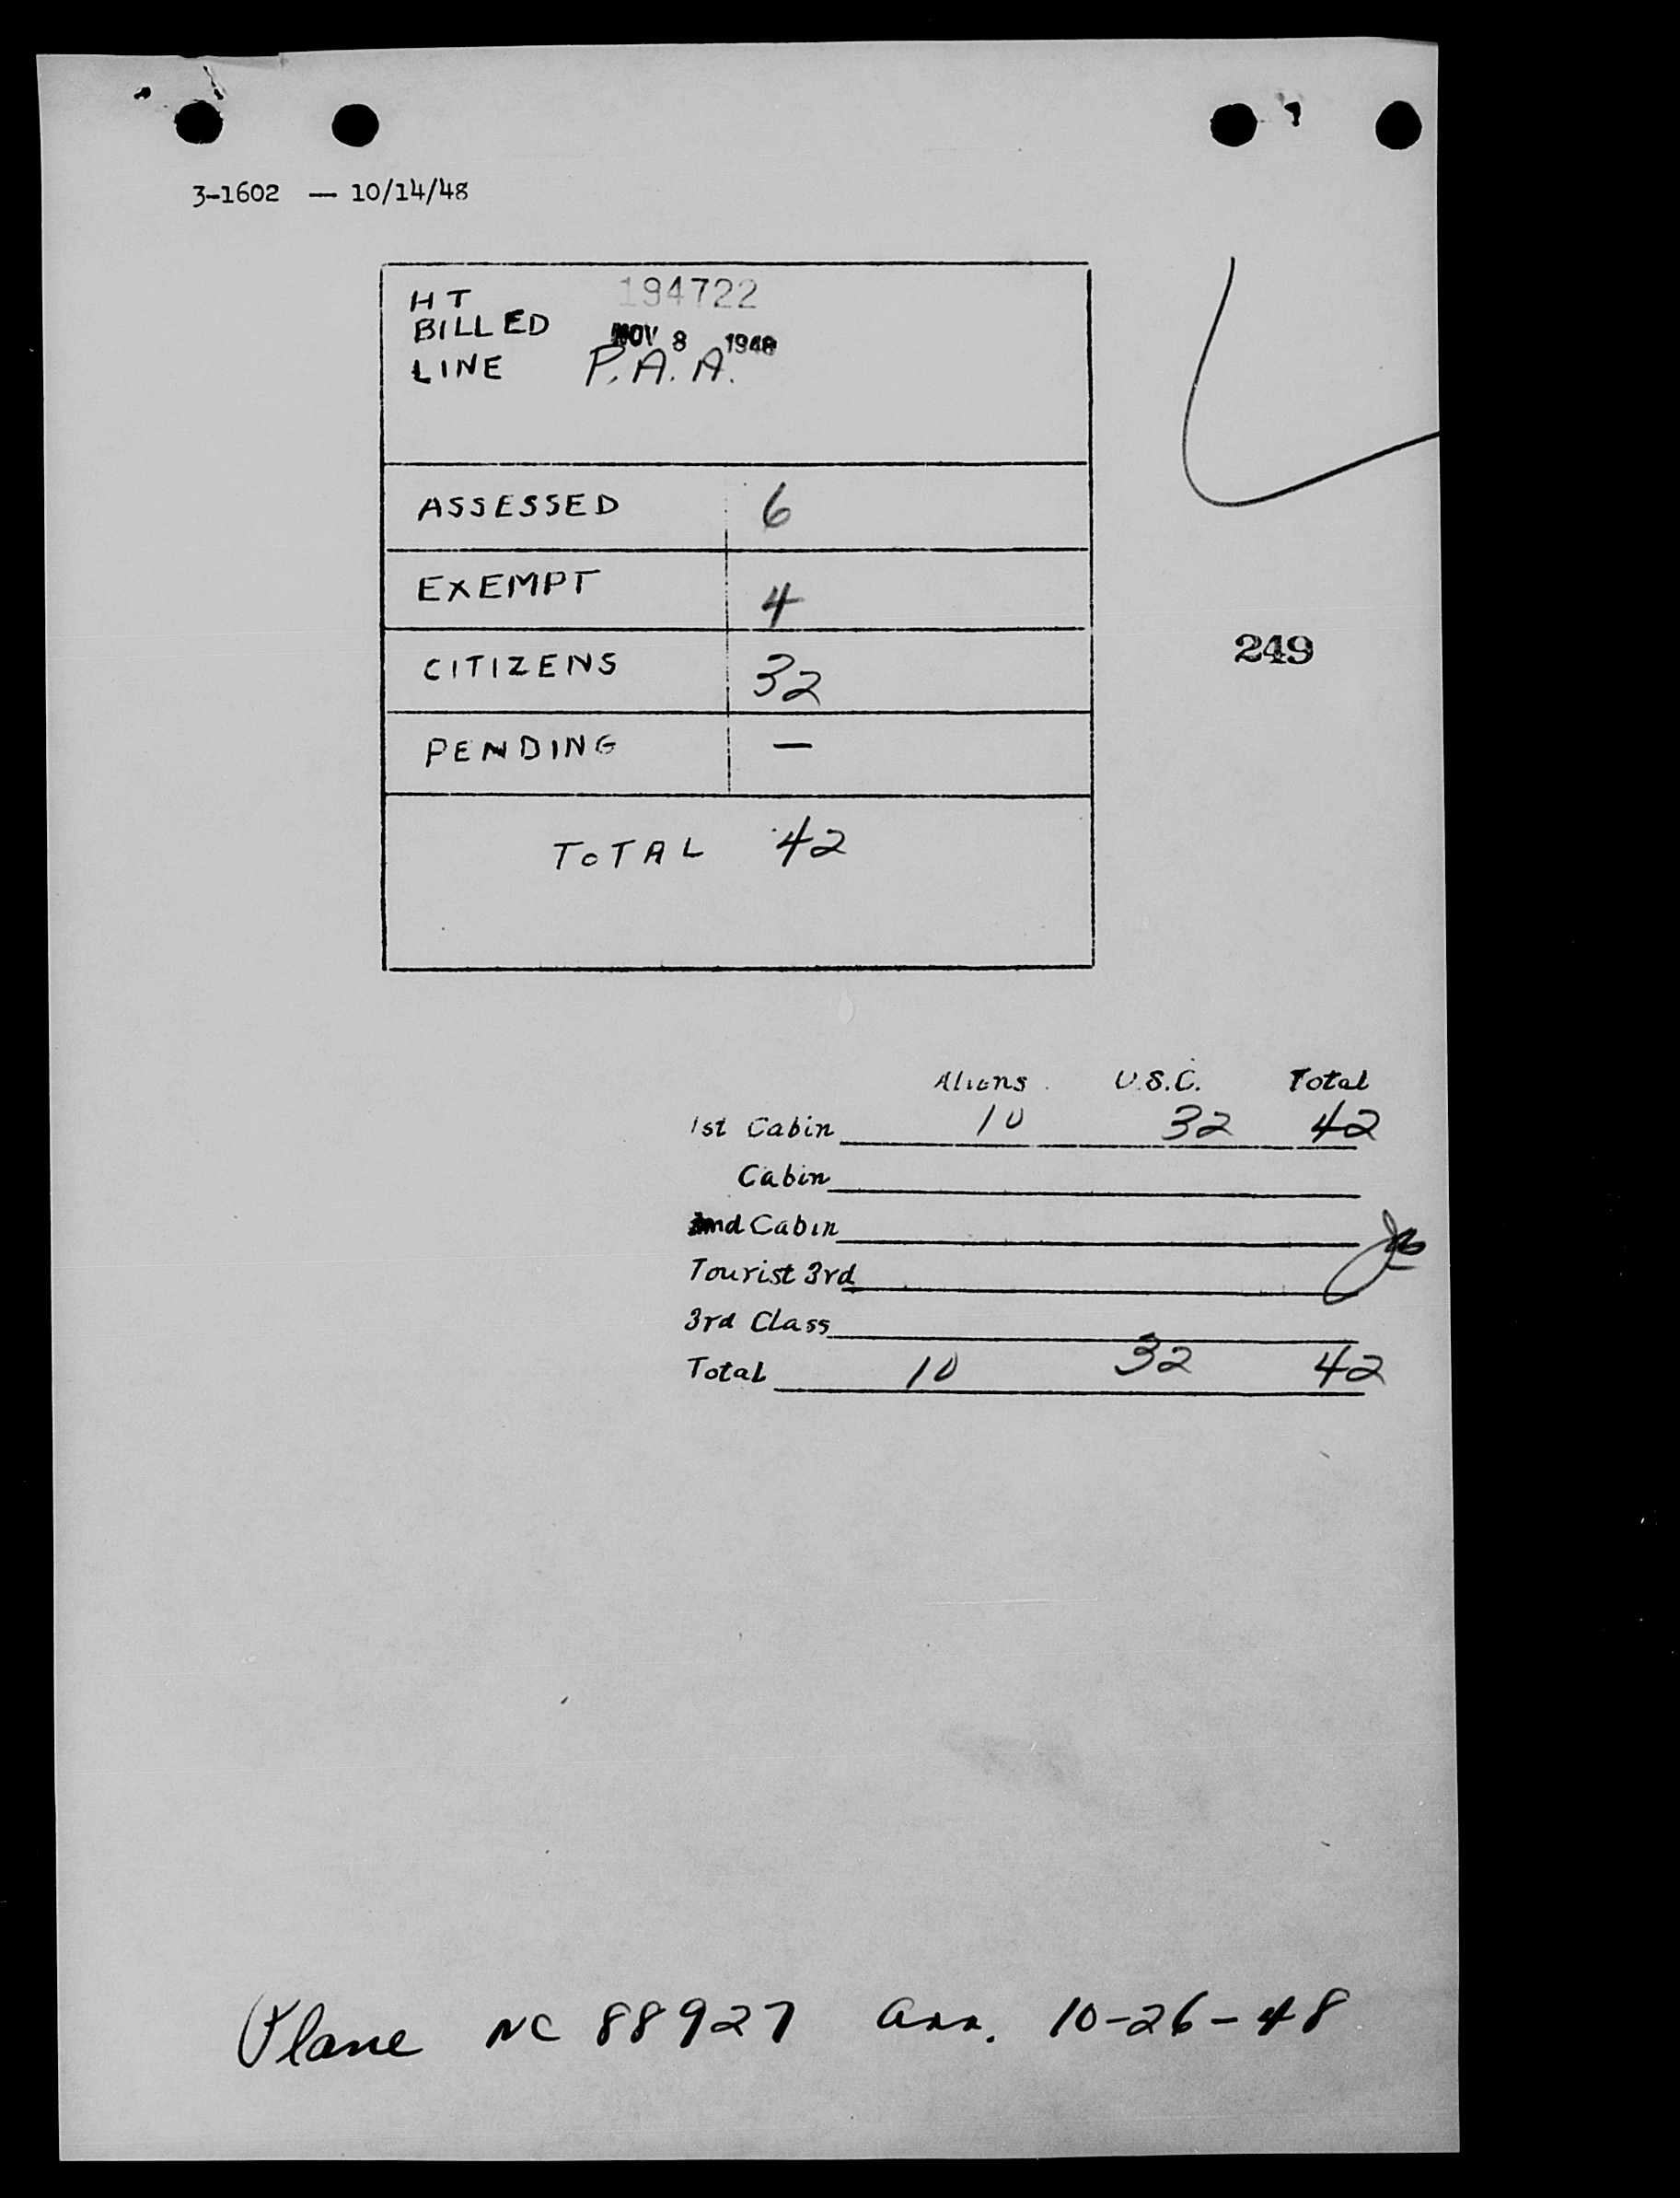 3-1602 — 10/14/48
HT 194722
BILLED NOV 8 1948
LINE P.A.A.
ASSESSED 6
EXEMPT 4
249
CITIZENS 32
PENDING —
TOTAL 42
Aliens U.S.C. Total
1st Cabin 10 32 42
Cabin
2nd Cabin
Tourist 3rd
3rd Class
Total 10 32 42
Plane NC 88927 arr. 10-26-48